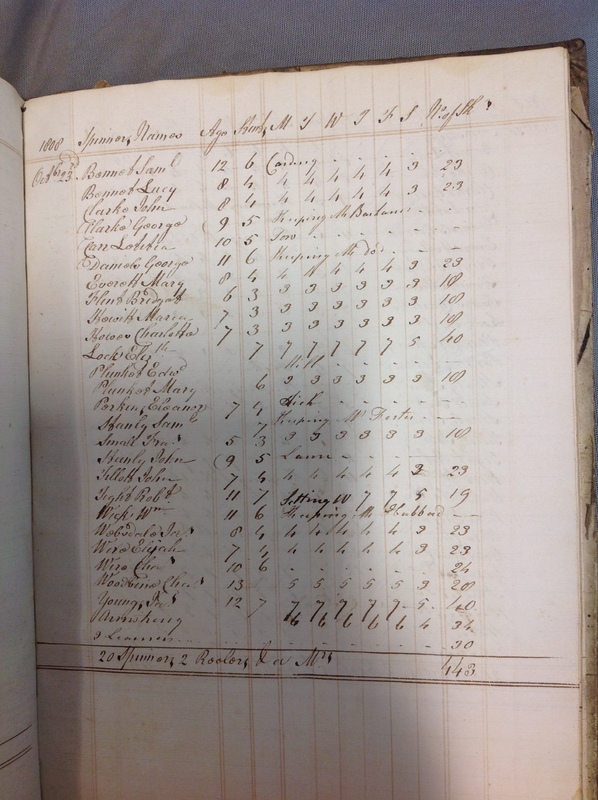 1808 Spinners Names Age Stint M T W T F S No of Sks
Octbr 23rd Bennet Saml 12 6 Carding - - - - 23
Bennet Lucy 8 4 4 4 4 4 4 3 23
Clarke John 8 4 4 4 4 4 4 3
Clarke George 9 5 Keeping Mr - - -
Carr Letitia 10 5 Tow - - - - -
Daniels George 11 6 Keeping Mr Do - - -
Everett Mary 8 4 4 4 4 4 4 3 23
Flint Bridget 6 3 3 3 3 3 3 3 18
Howitt Maria 7 3 3 3 3 3 3 3 18
Howes Charlotte 7 3 3 3 3 3 3 3 18
Lock Elizth 7 7 7 7 7 7 5 40
Plunket Edwd Mill - - - -
Plunket Mary 6 3 3 3 3 3 3 18
Perkin Eleanor 7 4 Sick - - - -
Stanly Saml 7 Keeping Mr - -
Small Fras 5 3 3 3 3 3 3 3 18
Stanly John 9 5 Lame - - - -
Tillett John 7 4 4 4 4 4 4 3 23
Tight Robt 11 7 Setting W 7 7 5 19
Wick Wm 11 6 Keeping Mr Hubbard -
Jas 8 4 4 4 4 4 4 3 23
Were Elijah 7 4 4 4 4 4 4 3 23
Were Chas 10 6 - - - - - 24
Woodbine Chas 13 5 5 5 5 5 3 28
Young Jas 12 7 7 7 7 7 7 5 40
Armstrong 6 6 6 6 6 4 34
3 Learners - - - - - - 30
20 Spinners 2 Reelers & a Mrs 448